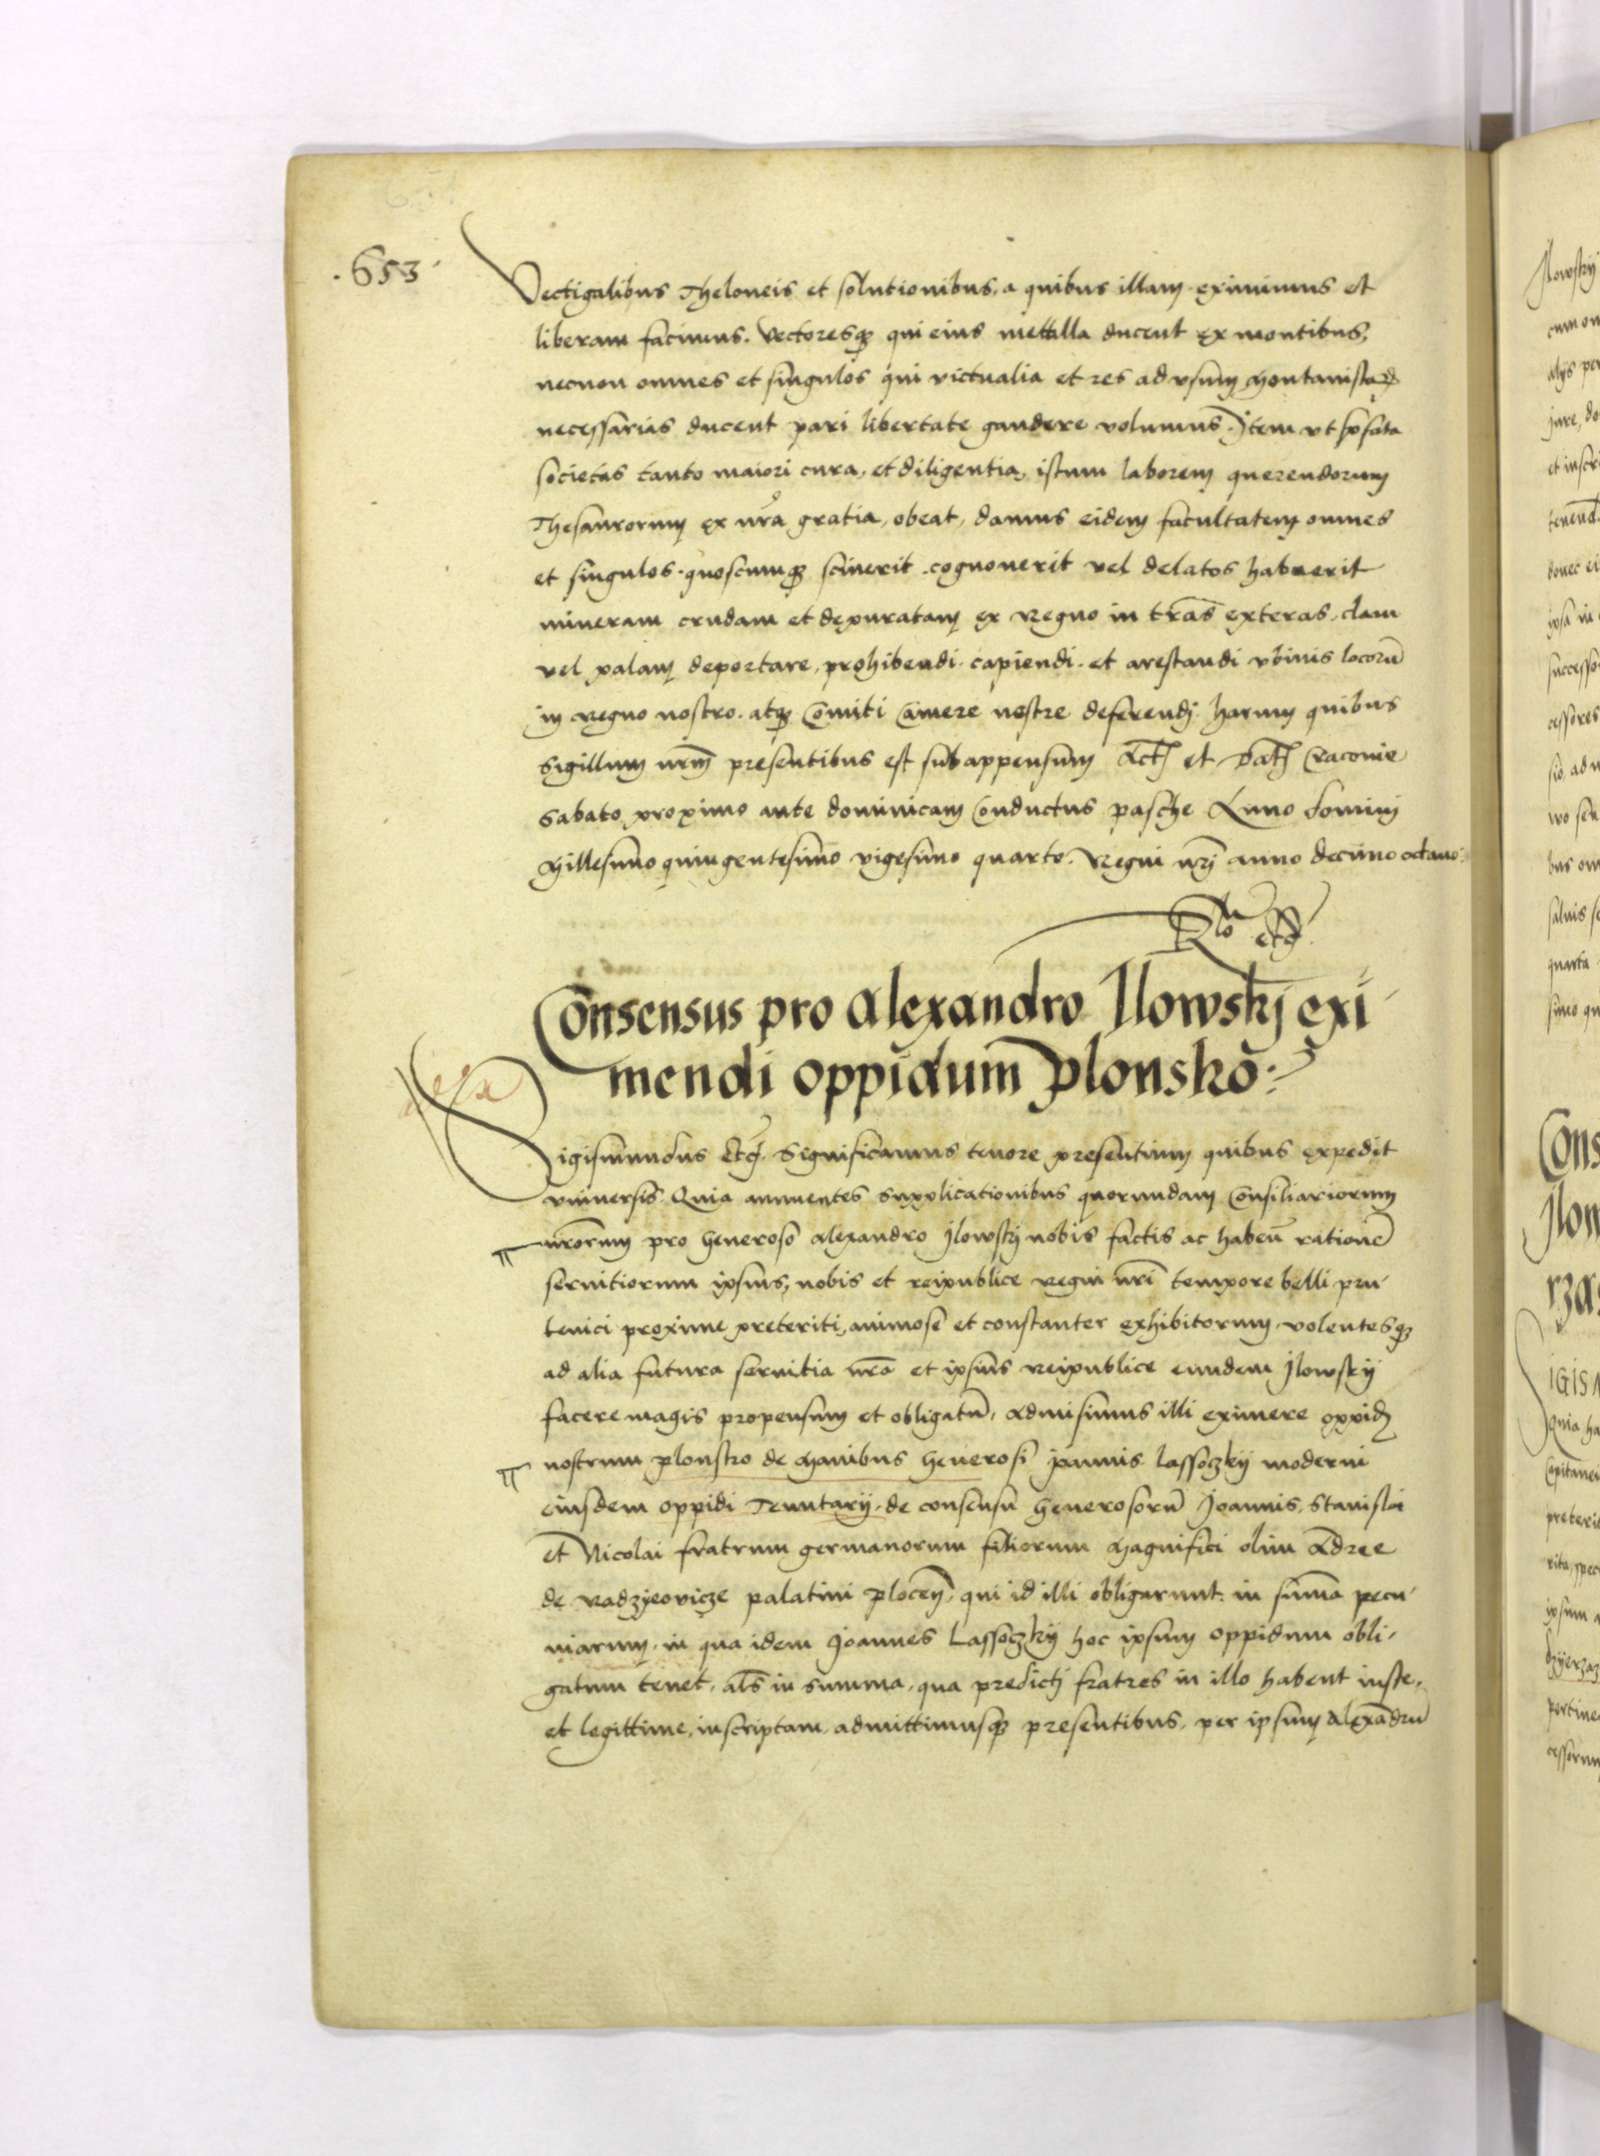 .653.
Vectigalibus Theloneis et solutionibus, a quibus illam eximimus et
liberam facimus. Vectoresqꝫ qui eius mettalla ducent ex montibus,
necnon omnes et singulos qui victualia et res ad vsum Montanistaꝝ
necessarias ducent pari libertate gaudere volumus. Item vt p̄fata
societas tanto maiori cura, et diligentia, istum laborem querendorum
Thesaurorum ex nr̄a gratia, obeat, damus eidem facultatem omnes
et singulos. quoscumqꝫ sciuerit. cognouerit vel delatos habuerit
mineram crudam et depuratam ex Regno in tr̄as exteras, clam
vel palam deportare, prohibendi. capiendi. et arestandi vbiuis locorū
in Regno nostro. atqꝫ Comiti Camere nostre deferendj. harum quibus
Sigillum nr̄m presentibus est subappensum Act̄ et Dat̄ Cracouie
Sabato proximo ante dominicam Conductus pasche Anno domini
Millesimo quingentesimo vigesimo quarto. Regni nr̄j anno decimo octauo.
Rlo etc̄
Consensus pro Alexandro Ilowskj exi
mendi oppidum Plonsko
Sigismundus Etc̄. Significamus tenore presentium quibus expedit
vniuersis. Quia annuentes supplicationibus quorundam Consiliariorum
nr̄orum pro Generoso Alexandro Jlowskj nobis factis ac habeñ rationē
seruitiorum ipsius, nobis et reipublice regni nr̄i tempore belli pru
tenici proxime preteriti, animose et constanter exhibitorum, volentesqꝫ
ad alia futura seruitia nr̄a et ipsius Reipublice eundem Jlowskÿ
facere magis propensum et obligatū, Admisimus illi eximere oppid̄
nostrum plonsko de Manibus Generosi joannis Lassoczkÿ moderni
eiusdem oppidi Tenutarij, de consensu Generosorū Joannis, Stanislai
et Nicolai fratrum germanorum filiorum Magnifici olim Ādree
de Radzÿeovicze palatini plocēn, qui id illi obligarunt in summa pecu
niarum, in qua idem Joannes Lassoczkÿ hoc ipsum oppidum obli,
gatum tenet, als̄ in Summa, qua predictj fratres in illo habent iuste,
et legittime, inscriptam, admittimusqꝫ presentibus, per ipsum Alexādrū